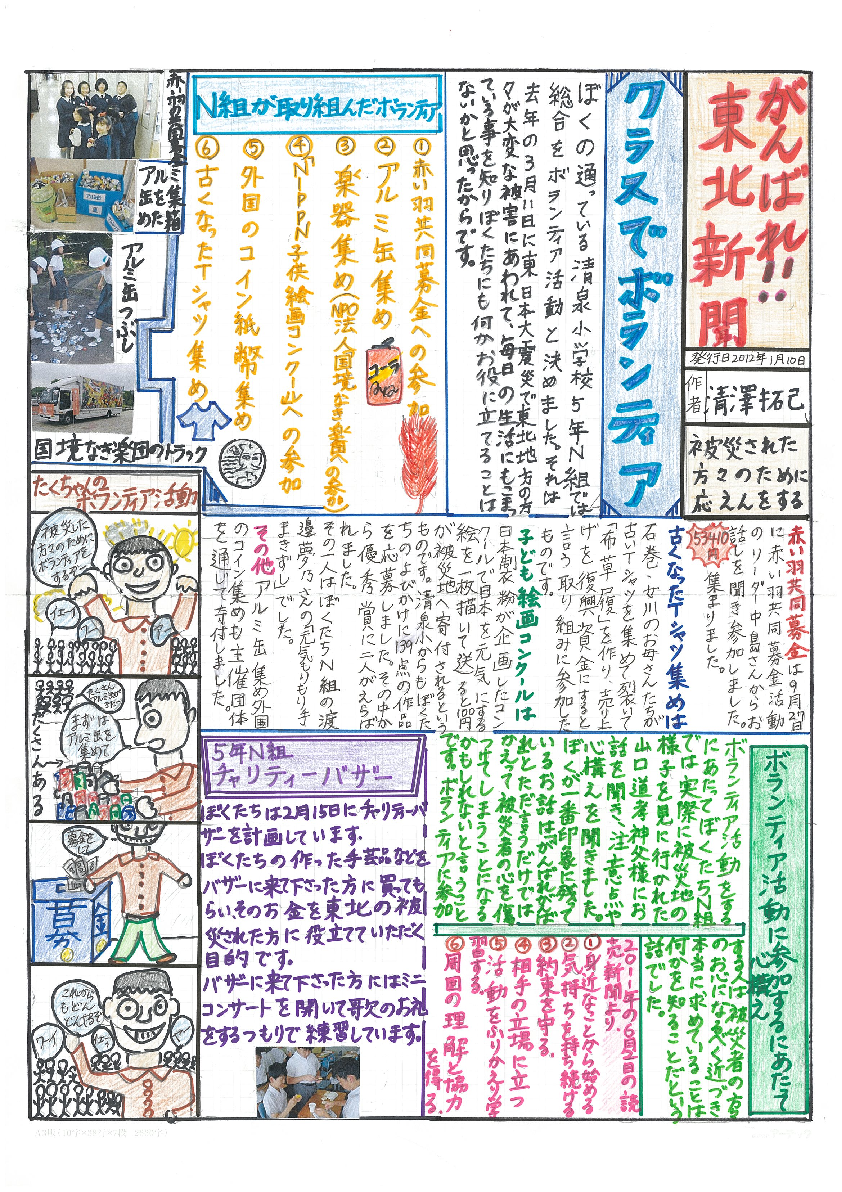 がんばれ!!
東北新聞
発行日2012年1月10日
作者 清澤拓己
被災された
方々のために
応えんをする
クラスでボランティア
ぼくの通っている清泉小学校5年N組では
総合をボランティア活動と決めました。それは
去年の3月11日に東日本大震災で東北地方の方
々が大変な被害にあわれて、毎日の生活にもこまっ
ている事を知りぼくたちにも何かお役に立てることは
ないかと思ったからです。
N組が取り組んだボランティア
①赤い羽共同募金への参加
②アルミ缶集め
③楽器集め(NPO法人国境なき楽団への参加)
④「NIPPN子供絵画コンクールへの参加
⑤外国のコイン紙幣集め
⑥古くなったTシャツ集め
コーラ
赤羽共同募金
アルミ缶を集めた箱
アルミ缶つぶし
国境なき楽団のトラック
赤い羽共同募金は9月27日
に赤い羽共同募金活動
のリーダー中島さんからお
話しを聞き参加しました。
53410円
集まりました。
古くなったTシャツ集めは
石巻・女川のお母さんたちが
古いTシャツを集めて裂いて
「布草履」を作り、売り上
げを復興資金にすると
言う取り組みに参加した
ものです。
子ども絵画コンクールは
日本製粉が企画したコン
クールで日本を元気にする
絵を一枚描いて送ると100円
が被災地へ寄付されるという
ものです。清泉小からもぼくた
ちのよびかけに139点の作品
を応募しました。その中か
ら優秀賞に二人がえらば
れました。
その一人はぼくたちN組の渡
邉夢乃さんの元気もりもり手
まきずし」でした。
その他「アルミ缶集め外国
のコイン集めも主催団体
を通して寄付しました。
たくちゃんの
ボランティア活動
被災した
方々のために
ボランティアを
するぞー
イェーイ
たくさん
まずは
アルミ缶を
集めて
たくさんある
募金を
して
募金
これから
もどん
どんするぞ
ワーイ
5年N組
チャリティーバザー
ぼくたちは2月15日にチャリティーバ
ザーを計画しています。
ぼくたちの作った手芸品などを
バザーに来て下さった方に買っても
らい、そのお金を東北の被
災された方に役立てていただく
目的です。
バザーに来て下さった方にはミニ
コンサートを開いて歌のお礼
をするつもりで練習しています。
ボランティア活動に参加するにあたて
心構え
ボランティア活動をする
にあたてぼくたちN組
では実際に被災地の
様子を見に行かれた
山口道孝神父様にお
話を聞き、注意点や
心構えを聞きました。
ぼくが一番印象に残って
いるお話はがんばれがんば
れとただ言うだけでは
かえって被災者の心を傷
つけてしまうことになる
かもしれないと言うこと
です。ボランティアに参加
する人は被災者の方
のお心になるべく近づき
本当に求めていることは
何かを知ることだという
話でした。
2011年の6月2日の読
売新聞より
①身近なことから始める
②気持ちを持ち続ける
③約束を守る。
④相手の立場に立つ
⑤活動をふりかえり学
習する。
⑥周囲の理解と協力
を得る。